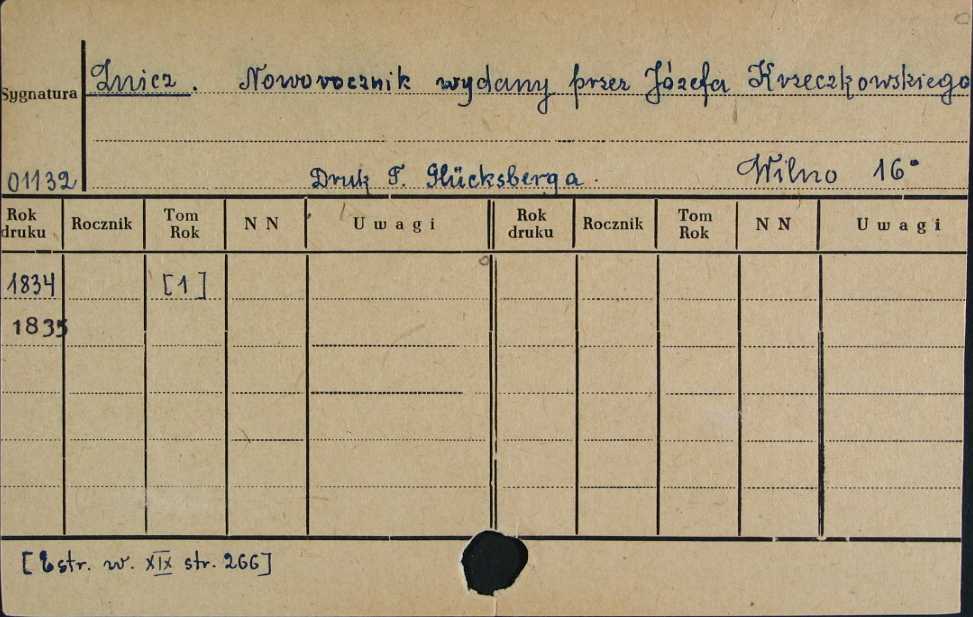 Znicz. Noworocznik wydany przez Józefa Krzeczkowskiego
Sygnatura
01132 Druk T. Glücksberga. Wilno 16°
Rok druku Rocznik Tom Rok N N Uwagi Rok druku Rocznik Tom Rok N N Uwagi
1834 [1]
1835
[Estr. w. XIX str. 266]